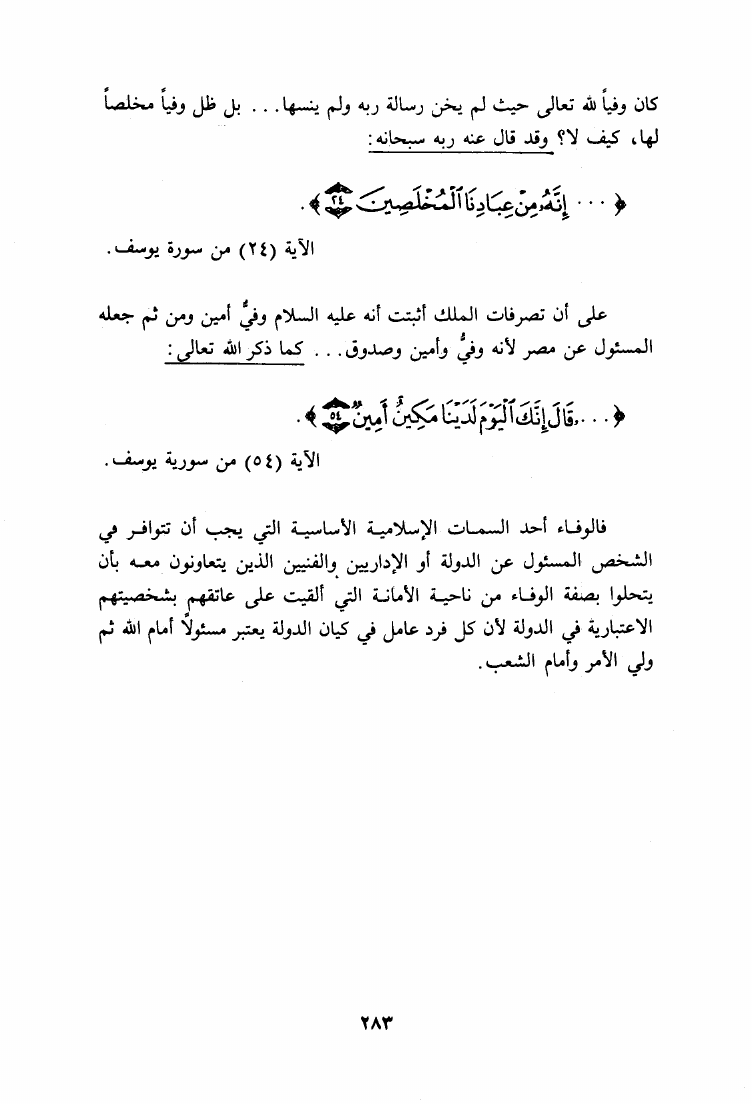 كان وفياً لله تعالى حيث لم يخن رسالة ربه ولم ينسها... بل ظل وفياً مخلصاً
لها، كيف لا؟ وقد قال عنه ربه سبحانه:
﴿... إِنَّهُۥ مِنْ عِبَادِنَا ٱلْمُخْلَصِينَ ٢٤﴾.
الآية (٢٤) من سورة يوسف.
على أن تصرفات الملك أثبتت أنه عليه السلام وفيٌّ أمين ومن ثم جعله
المسئول عن مصر لأنه وفيٌّ وأمين وصدوق... كما ذكر الله تعالى:
﴿... قَالَ إِنَّكَ ٱلْيَوْمَ لَدَيْنَا مَكِينٌ أَمِينٌ ٥٤﴾.
الآية (٥٤) من سورية يوسف.
فالوفاء أحد السمات الإسلامية الأساسية التي يجب أن تتوافر في
الشخص المسئول عن الدولة أو الإداريين والفنيين الذين يتعاونون معه بأن
يتحلوا بصفة الوفاء من ناحية الأمانة التي ألقيت على عاتقهم بشخصيتهم
الاعتبارية في الدولة لأن كل فرد عامل في كيان الدولة يعتبر مسئولاً أمام الله ثم
ولي الأمر وأمام الشعب.
٢٨٣